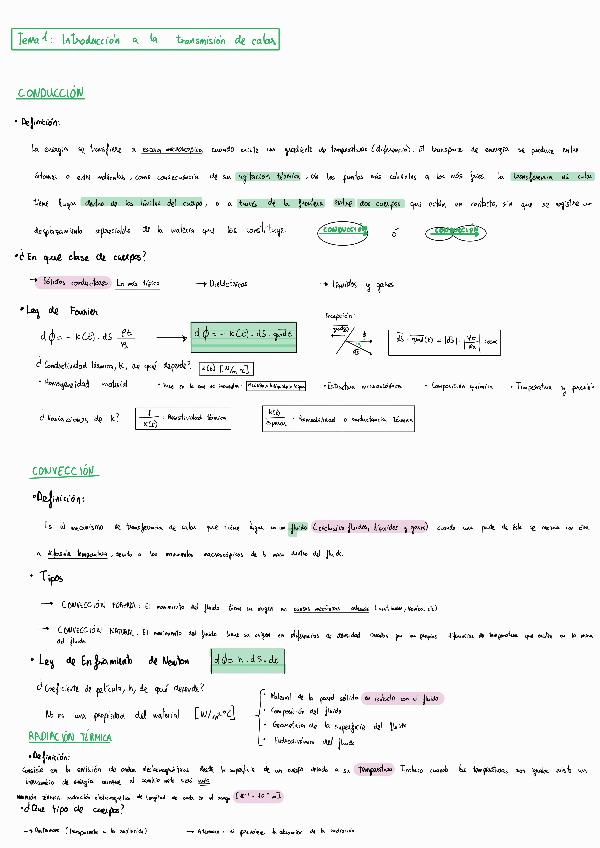 Tema 1: Introducción a la transmisión de calor
CONDUCCIÓN
• Definición:
La energía se transfiere a escala microscópica cuando existe un gradiente de temperaturas (diferencia). El transporte de energía se produce entre
átomos o entre moléculas, como consecuencia de su agitación térmica, de los puntos más calientes a los más fríos. La transferencia de calor
tiene lugar dentro de los límites del cuerpo, o a través de la frontera entre dos cuerpos que estén en contacto, sin que se registre un
desplazamiento apreciable de la materia que los constituye. CONDUCCIÓN ó CONDUCCIÓN
• ¿En qué clase de cuerpos?
→ Sólidos conductores Lo más típico → Dieléctricos → Líquidos y gases
• Ley de Fourier
Excepción:
¿Conductividad térmica, K, de qué depende?
• Homogeneidad material • Estructura microscópica • Composición química • Temperatura y presión
¿Variaciones de K? : Resistividad térmica
CONVECCIÓN
• Definición:
Es el mecanismo de transferencia de calor que tiene lugar en un fluido (exclusivo fluidos, líquidos y gases) cuando una parte de éste se mezcla con otra
a diferente temperatura, debido a los movimientos macroscópicos de la masa dentro del fluido.
• Tipos
→ CONVECCIÓN FORZADA: El movimiento del fluido tiene su origen en causas mecánicas externas
→ CONVECCIÓN NATURAL: El movimiento del fluido tiene su origen en diferencias de densidad creadas por las propias diferencias de temperatura que existen en la masa
del fluido.
• Ley de Enfriamiento de Newton dΦ = h · dS · dt
¿Coeficiente de película, h, de qué depende?
No es una propiedad del material [W/m²·ºC]
• Material de la pared sólida en contacto con el fluido
• Composición del fluido
• Geometría de la superficie del fluido
• Hidrodinámica del fluido
RADIACIÓN TÉRMICA
• Definición:
Consiste en la emisión de ondas electromagnéticas desde la superficie de un cuerpo debido a su temperatura. Incluso cuando las temperaturas son iguales existe un
intercambio de energía aunque el cambio neto será nulo.
radiación electromagnética de longitud de onda en el rango
• ¿Qué tipo de cuerpos?
→ (transparente a la radiación) → la absorción de la radiación